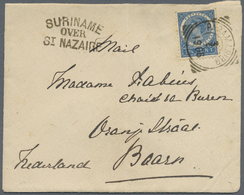 SURINAME
OVER
ST NAZAIRE
Mail
Madame
van Buren
Oranje Straat
Baarn
Nederland